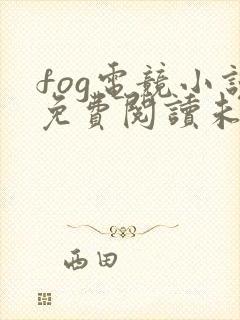 fog電競小說
免費閱讀未
西田